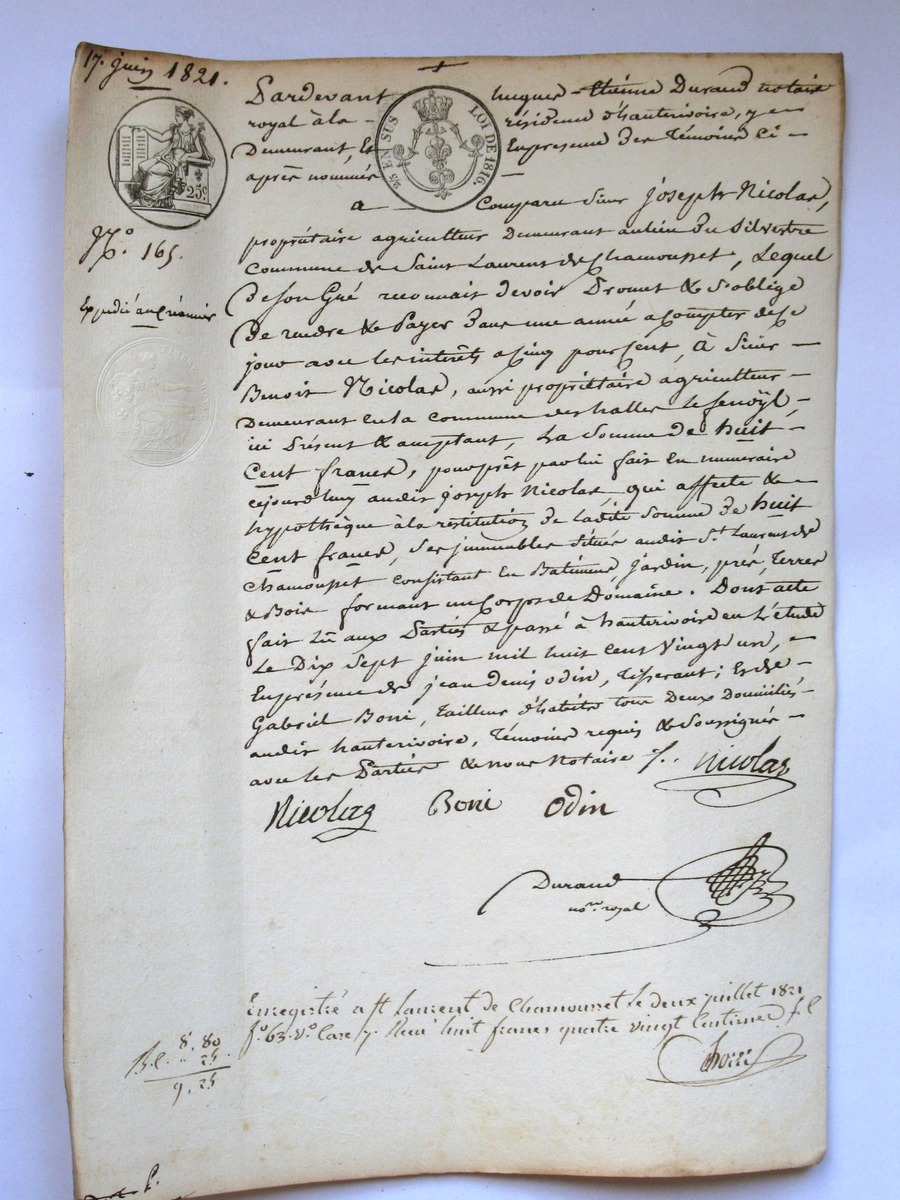 17. juin 1821.
Pardevant hugues - Etiénne Durand notaire
royal à la - résidence d'hauterivoire, y en
Demeurant, Et En présence des Témoins Ci -
après nommés
25c
2/5 EN SUS LOI DE 1816.
a Comparu Sieur Joseph Nicolas,
N.o 165.
propriétaire agriculteur Demeurant au lieu du Silvestre
Commune de Saint Laurent de Chamousset, Lequel
De son Gré reconnait devoir Promet & s'oblige
Expédié au Créancier
De rendre & Payer Dans une année a Compter de ce
jour avec les interêts a Cinq pour Cent, à Sieur
Benoit Nicolas, aussi propriétaire agriculteur
Demeurant en la Commune des halles le fenoÿl,
ici Présent & acceptant, La Somme de huit
Cent francs, pour prêt par lui fait en numeraire
cejourd'huy audit joseph Nicolas, qui affecte &
hypothèque à la restitution de ladite Somme de huit
Cent francs, Ses immeubles Situés audit St. Laurent de
Chamousset Consistant En Batiment, jardin, prés, Terres
& Bois formant un Corps de Domaine. Dont acte
fait Lu aux Parties & passé à hauterivoire en L'étude
Le Dix Sept juin mil huit cent Vingt un,
En présence de jean denis Odin, Tisserant; Et de
Gabriel Boni, Tailleur d'habits tous Deux Domiciliés
audit hauterivoire, Témoins requis & Soussignés
avec les Parties & nous Notaire /. Nicolas
Nicolas Boni Odin
Durand
no.re royal
Enregistré a St Laurent de Chamousset le deux juillet 1821
fo. 63. vo. Case 7. Recu huit francs quatre vingt Centimes
8. 80
9. 25